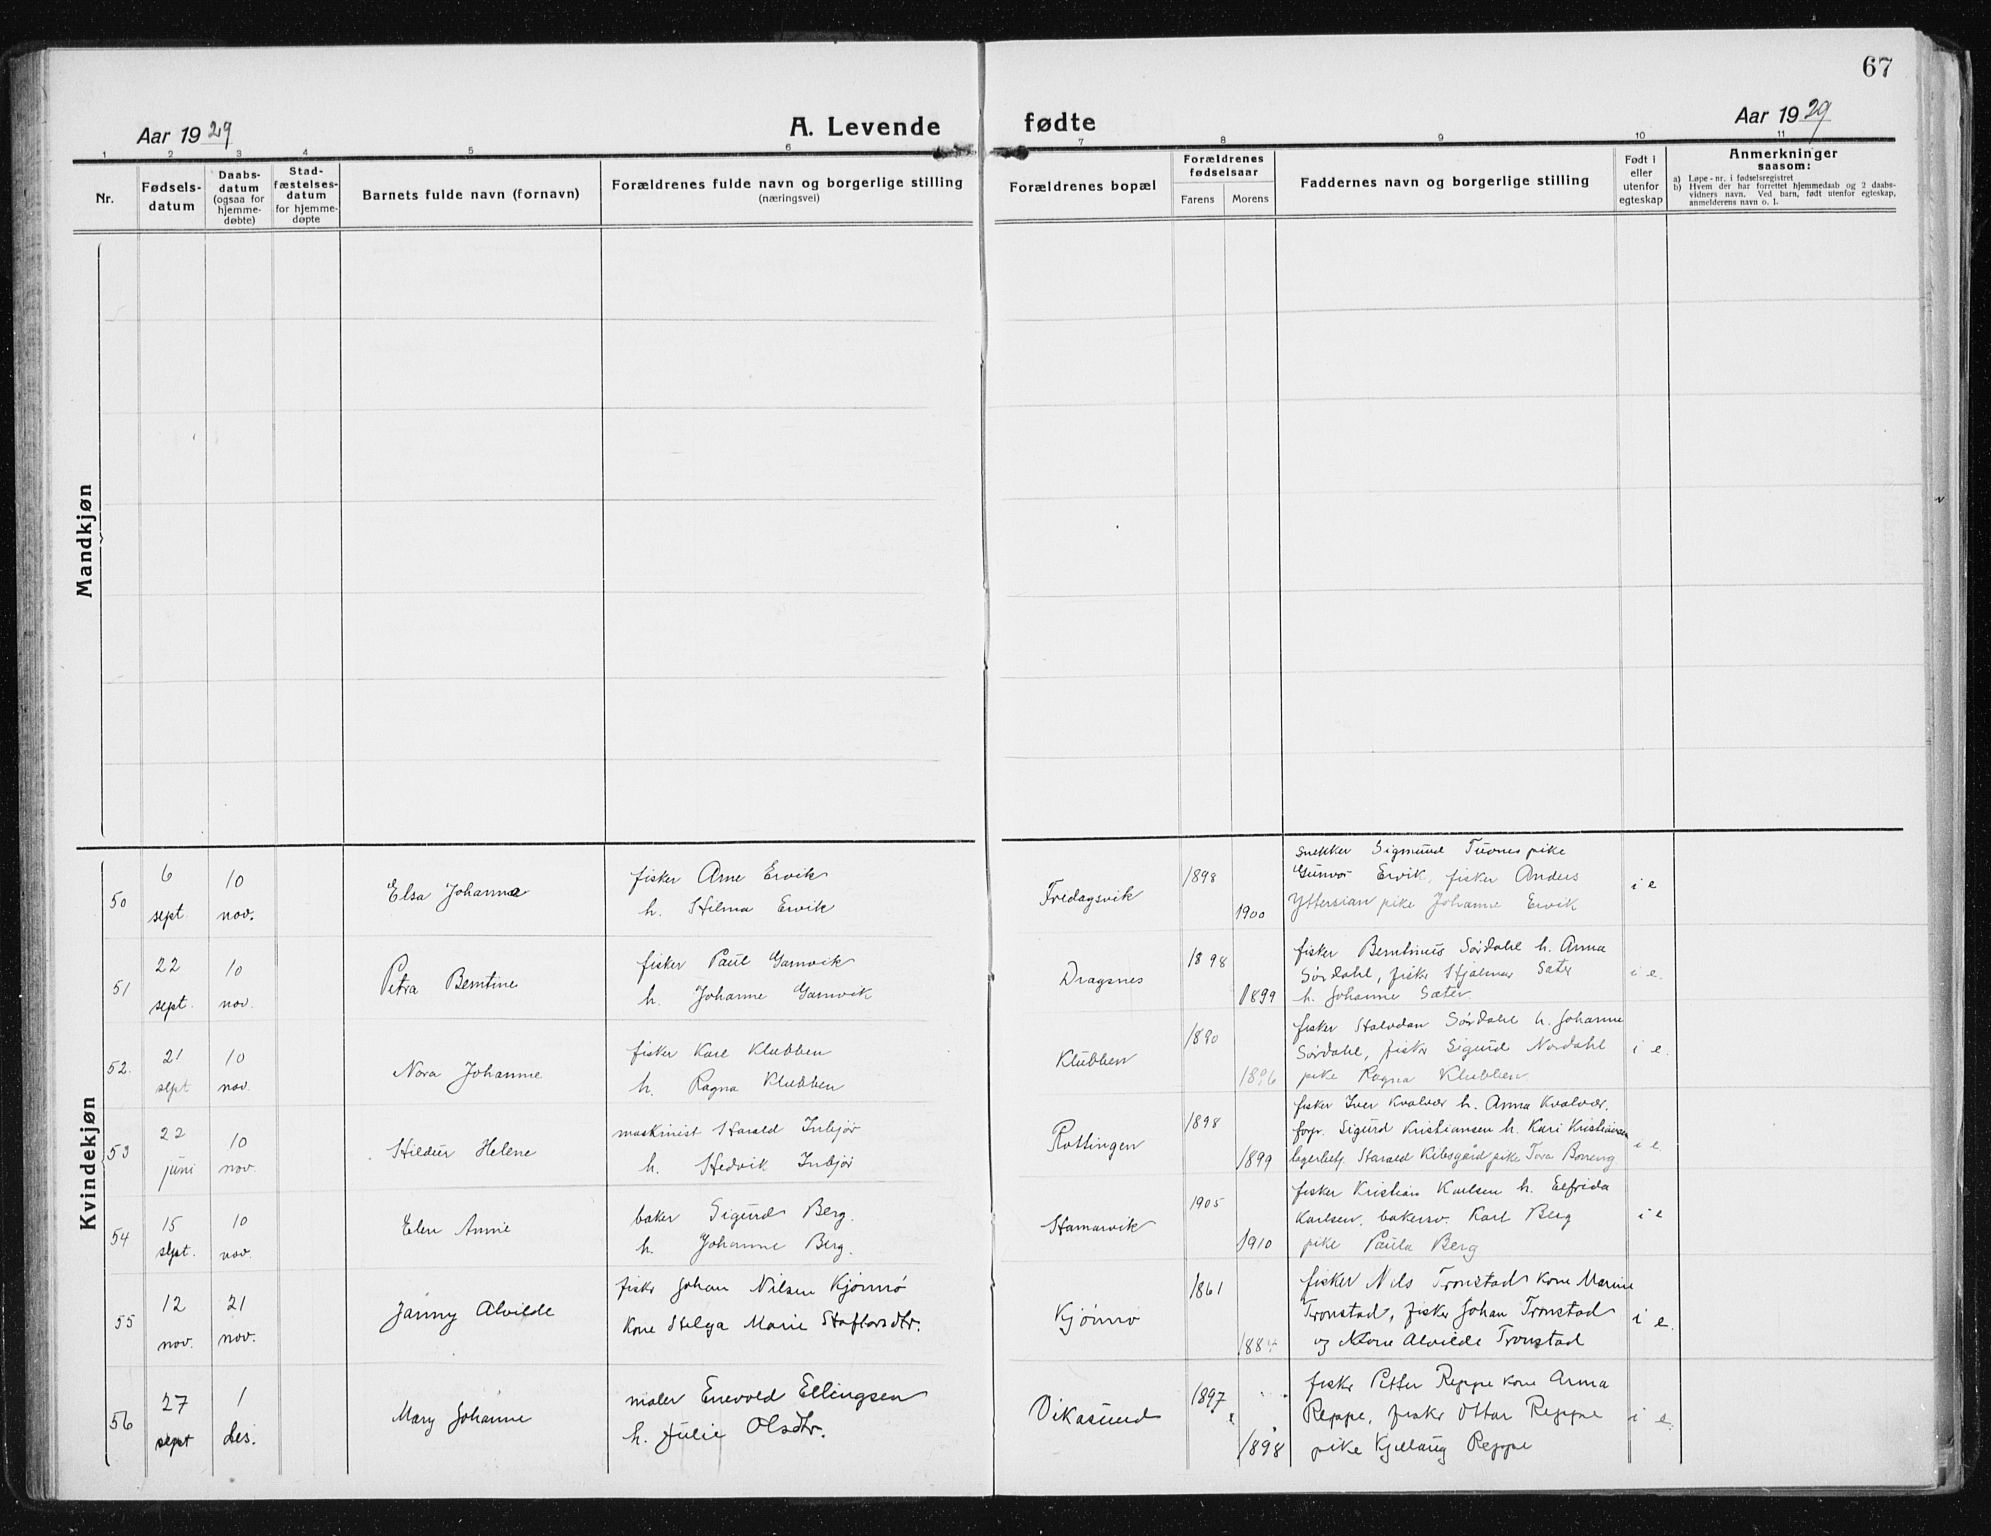 67
Aar 1929
A. Levende fødte
Aar 1929
1 2 3 4 5 6 7 8 9 10 11
Nr.
Fødsels-
datum
Daabs-
datum
(ogsaa for
hjemme-
døbte)
Stad-
fæstelses-
datum
for hjemme-
døpte
Barnets fulde navn (fornavn)
Forældrenes fulde navn og borgerlige stilling
(næringsvei)
Forældrenes bopæl
Forældrenes
fødselsaar
Farens Morens
Faddernes navn og borgerlige stilling
Født i
eller
utenfor
egteskap
Anmerkninger
saasom:
a) Løpe-nr. i fødselsregistret
b) Hvem der har forrettet hjemmedaab og 2 daabs-
vidners navn. Ved barn, født utenfor egteskap,
anmelderens navn o. l.
Mandkjøn
Kvindekjøn
50
6
sept.
10
nov.
Elsa Johanna
fisker Arne Ervik
h. Hilma Ervik
Fredagsvik
1898
1900
snekker Sigmund Tuvnes pike
Gunvor Ervik, fisker Anders
Yttersian pike Johanne Ervik
i e
51
22
sept.
10
nov.
Petra Berntine
fisker Paul Gamvik
h. Johanne Gamvik
Dragsnes
1898
1899
fisker Berntinus Sørdahl h. Anna
Sørdahl, fisker Hjalmar Sæter
h. Johanne Sæter.
i e.
52.
21
sept
10
nov.
Nora Johanne
fisker Karl Klubben
h. Ragna Klubben
Klubben
1890
1896
fisker Halvdan Sørdahl h. Johanne
Sørdahl, fisker Sigurd Nordahl
pike Ragna Klubben
i e.
53
22
juni
10
nov.
Hildur Helene
maskinist Harald Inbjør
h. Hedvik Inbjør
Rottingen
1898
1899
fisker Iver Kvalvær h. Anna Kvalvær.
forp. Sigurd Kristiansen h. Kari Kristiansen
lagerbetj. Harald Kibsgård pike Tora Borreng
i e.
54
15
sept.
10
nov.
Elen Annie
baker Sigurd Berg.
h. Johanne Berg.
Hamarvik
1905
1910
fisker Kristian Karlsen h. Elfrida
Karlsen, bakersv. Karl Berg
pike Paula Berg
i e
55
12
nov.
21
nov.
Janny Alvilde
fisker Johan Nilsen Kjønnø
kone Helga Marie Haftorsdtr.
Kjønnø
1861
fisker Nils Tronstad kone Marine
Tronstad, fisker Johan Tronstad
og kone Alvilde Tronstad
i e.
56
27
sept
1
des.
Mary Johanne
maler Enevold Ellingsen
h. Julie Olsdtr.
Vikasund
1897
1898
fisker Petter Reppe kone Anna
Reppe, fisker Ottar Reppe
pike Kjellaug Reppe
i e.